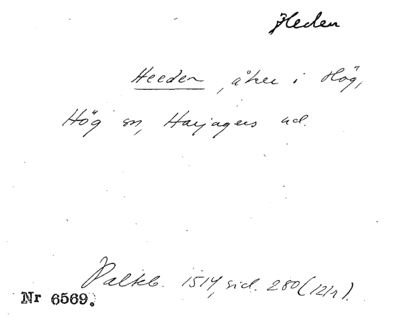 Heden
Heeden, åker i Hög,
Hög sn, Harjagers hd.
Palkb. 1514, sid. 280 (12/4).
Nr 6569.